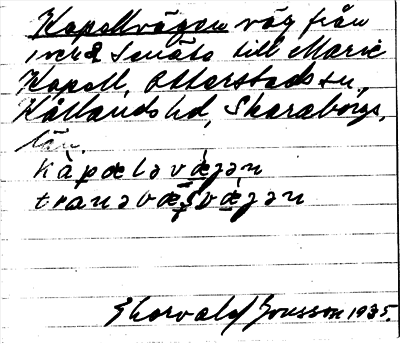 Kapellvägen väg från
Senäte till Marie
Kapell, Otterstads sn,
Kållands hd, Skaraborgs
län.
kàpæləvæ̀gən
tranəbæʂvæ̀gən
Thorvald Jonsson 1935.